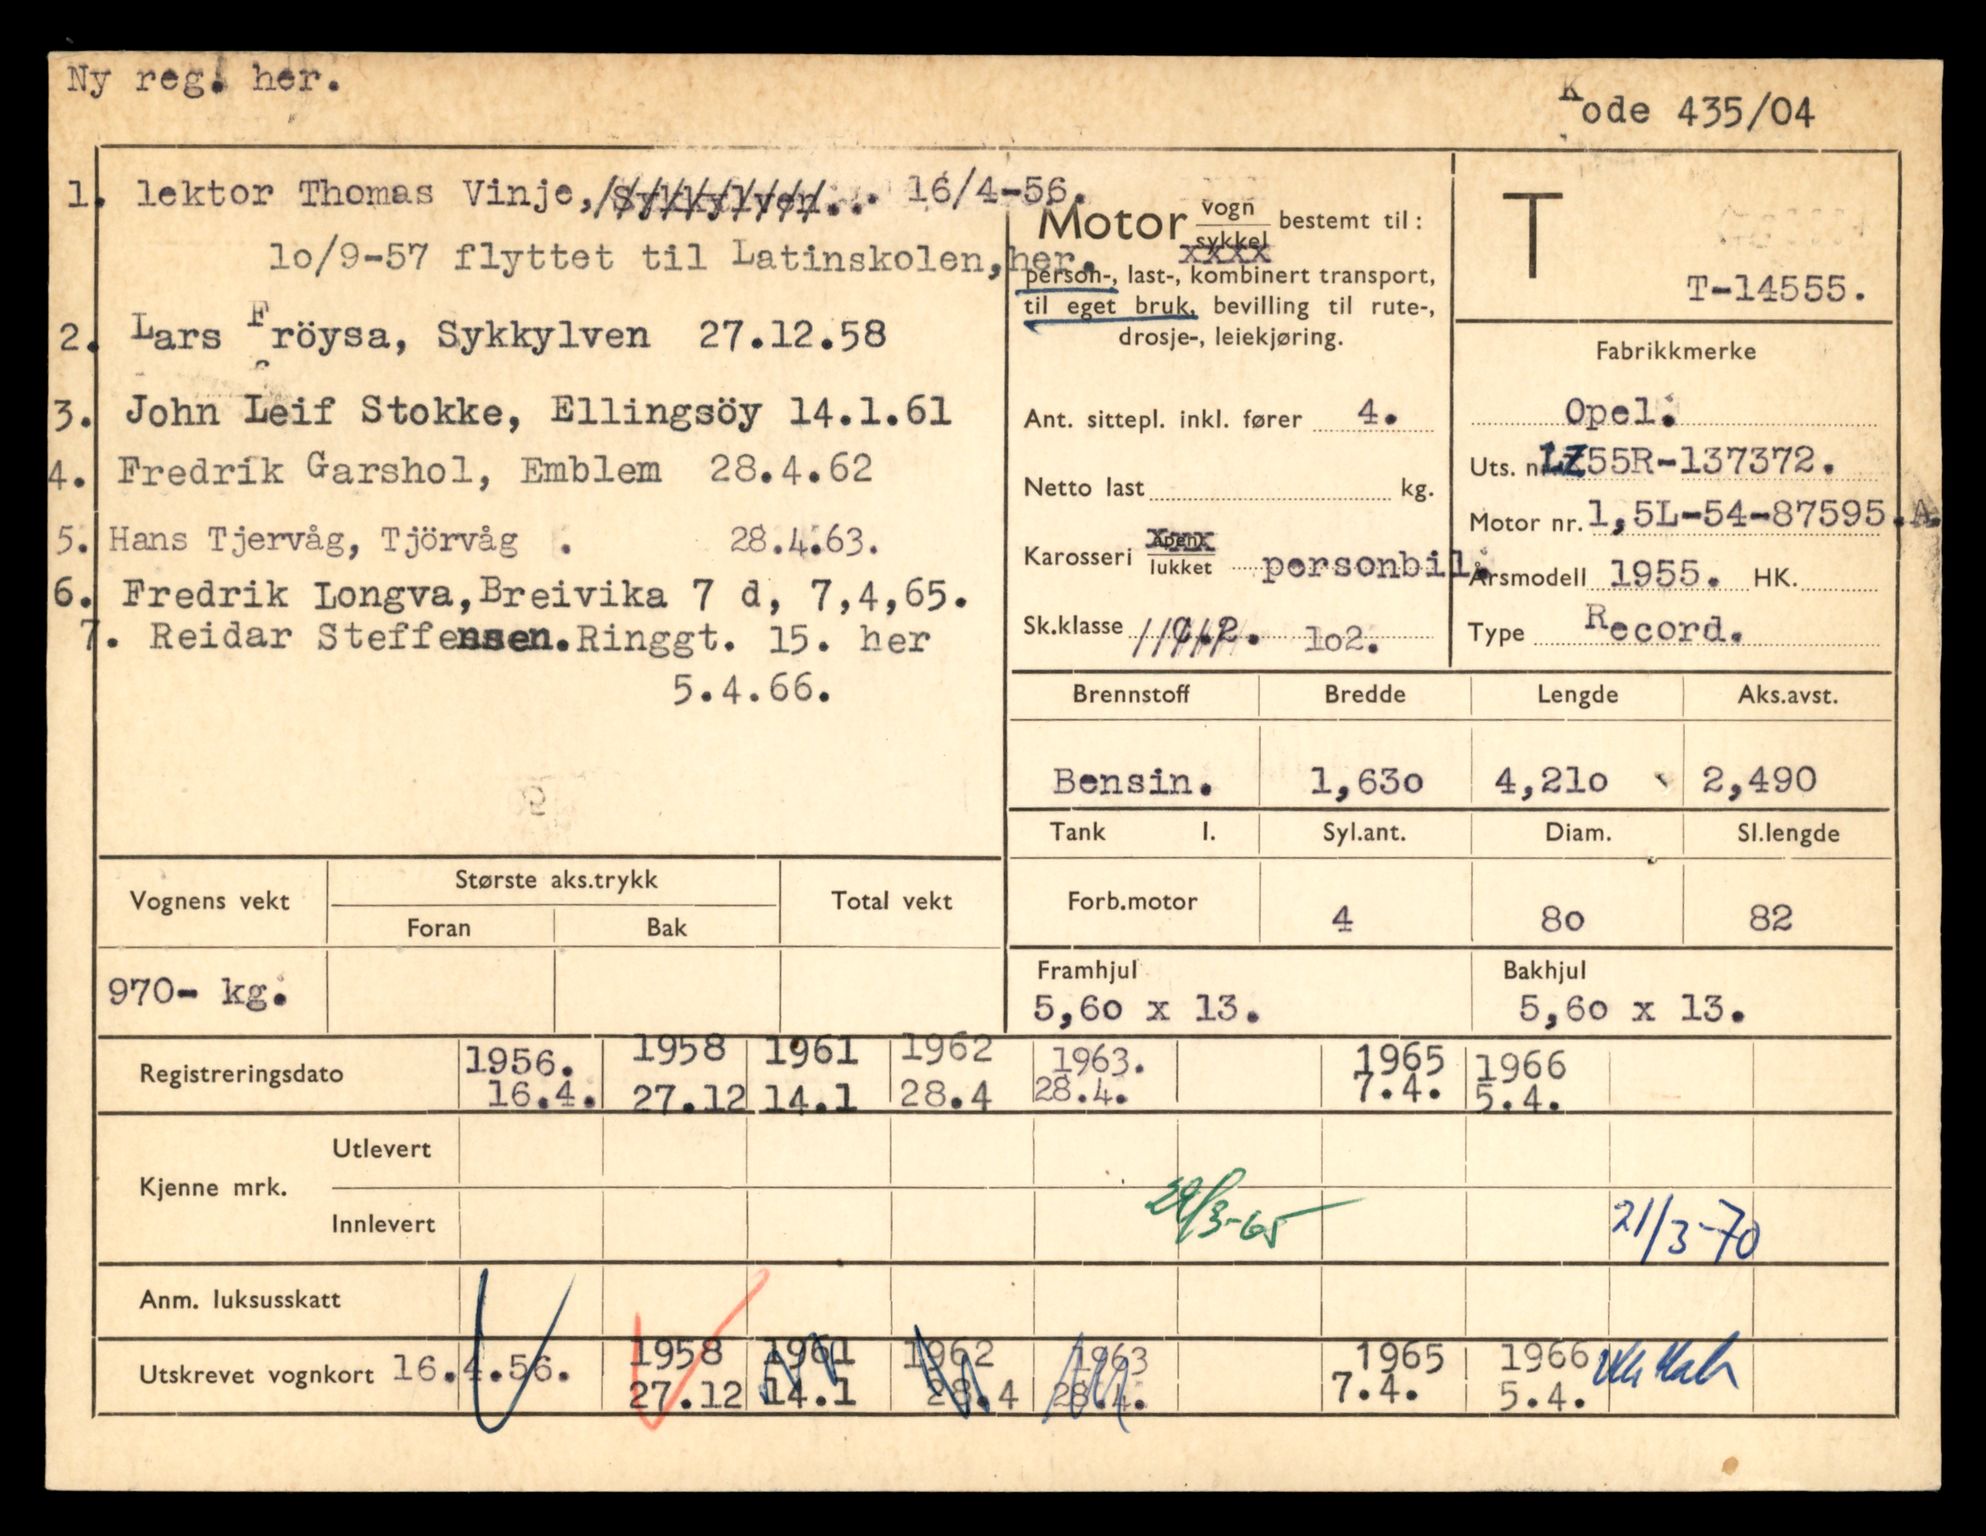 Ny reg. her.
Kode 435/04
1. lektor Thomas Vinje, Sykkylven.. 16/4-56.
10/9-57 flyttet til Latinskolen, her.
2. Lars Fröysa, Sykkylven 27.12.58
3. John Leif Stokke, Ellingsöy 14.1.61
4. Fredrik Garshol, Emblem 28.4.62
5. Hans Tjervåg, Tjörvåg . 28.4.63.
6. Fredrik Longva, Breivika 7 d, 7,4,65.
7. Reidar Steffensen. Ringgt. 15. her
5.4.66.
Motor vogn
sykkel bestemt til :
person-, last-, kombinert transport,
til eget bruk, bevilling til rute-,
drosje-, leiekjøring.
Ant. sittepl. inkl. fører 4.
Netto last kg.
Karosseri åpen
lukket personbil.
Sk.klasse lo2.
T
T-14555.
Fabrikkmerke
Opel.
Uts. nr. LZ55R-137372.
Motor nr. 1,5L-54-87595.A.
Årsmodell 1955. HK.
Type Record.
Brennstoff Bredde Lengde Aks.avst.
Bensin. 1,63o 4,21o 2,490
Tank l. Syl.ant. Diam. Sl.lengde
Forb.motor 4 80 82
Framhjul Bakhjul
5,60 x 13. 5,60 x 13.
Vognens vekt Største aks.trykk Total vekt
Foran Bak
970- kg.
Registreringsdato 1956. 1958 1961 1962 1963. 1965 1966
16.4. 27.12 14.1 28.4 28.4. 7.4. 5.4.
Kjenne mrk. Utlevert
Innlevert 29/3-65 21/3-70
Anm. luksusskatt
Utskrevet vognkort 16.4.56. 1958 1961 1962 1963 1965 1966
27.12 14.1 28.4 28.4. 7.4. 5.4.